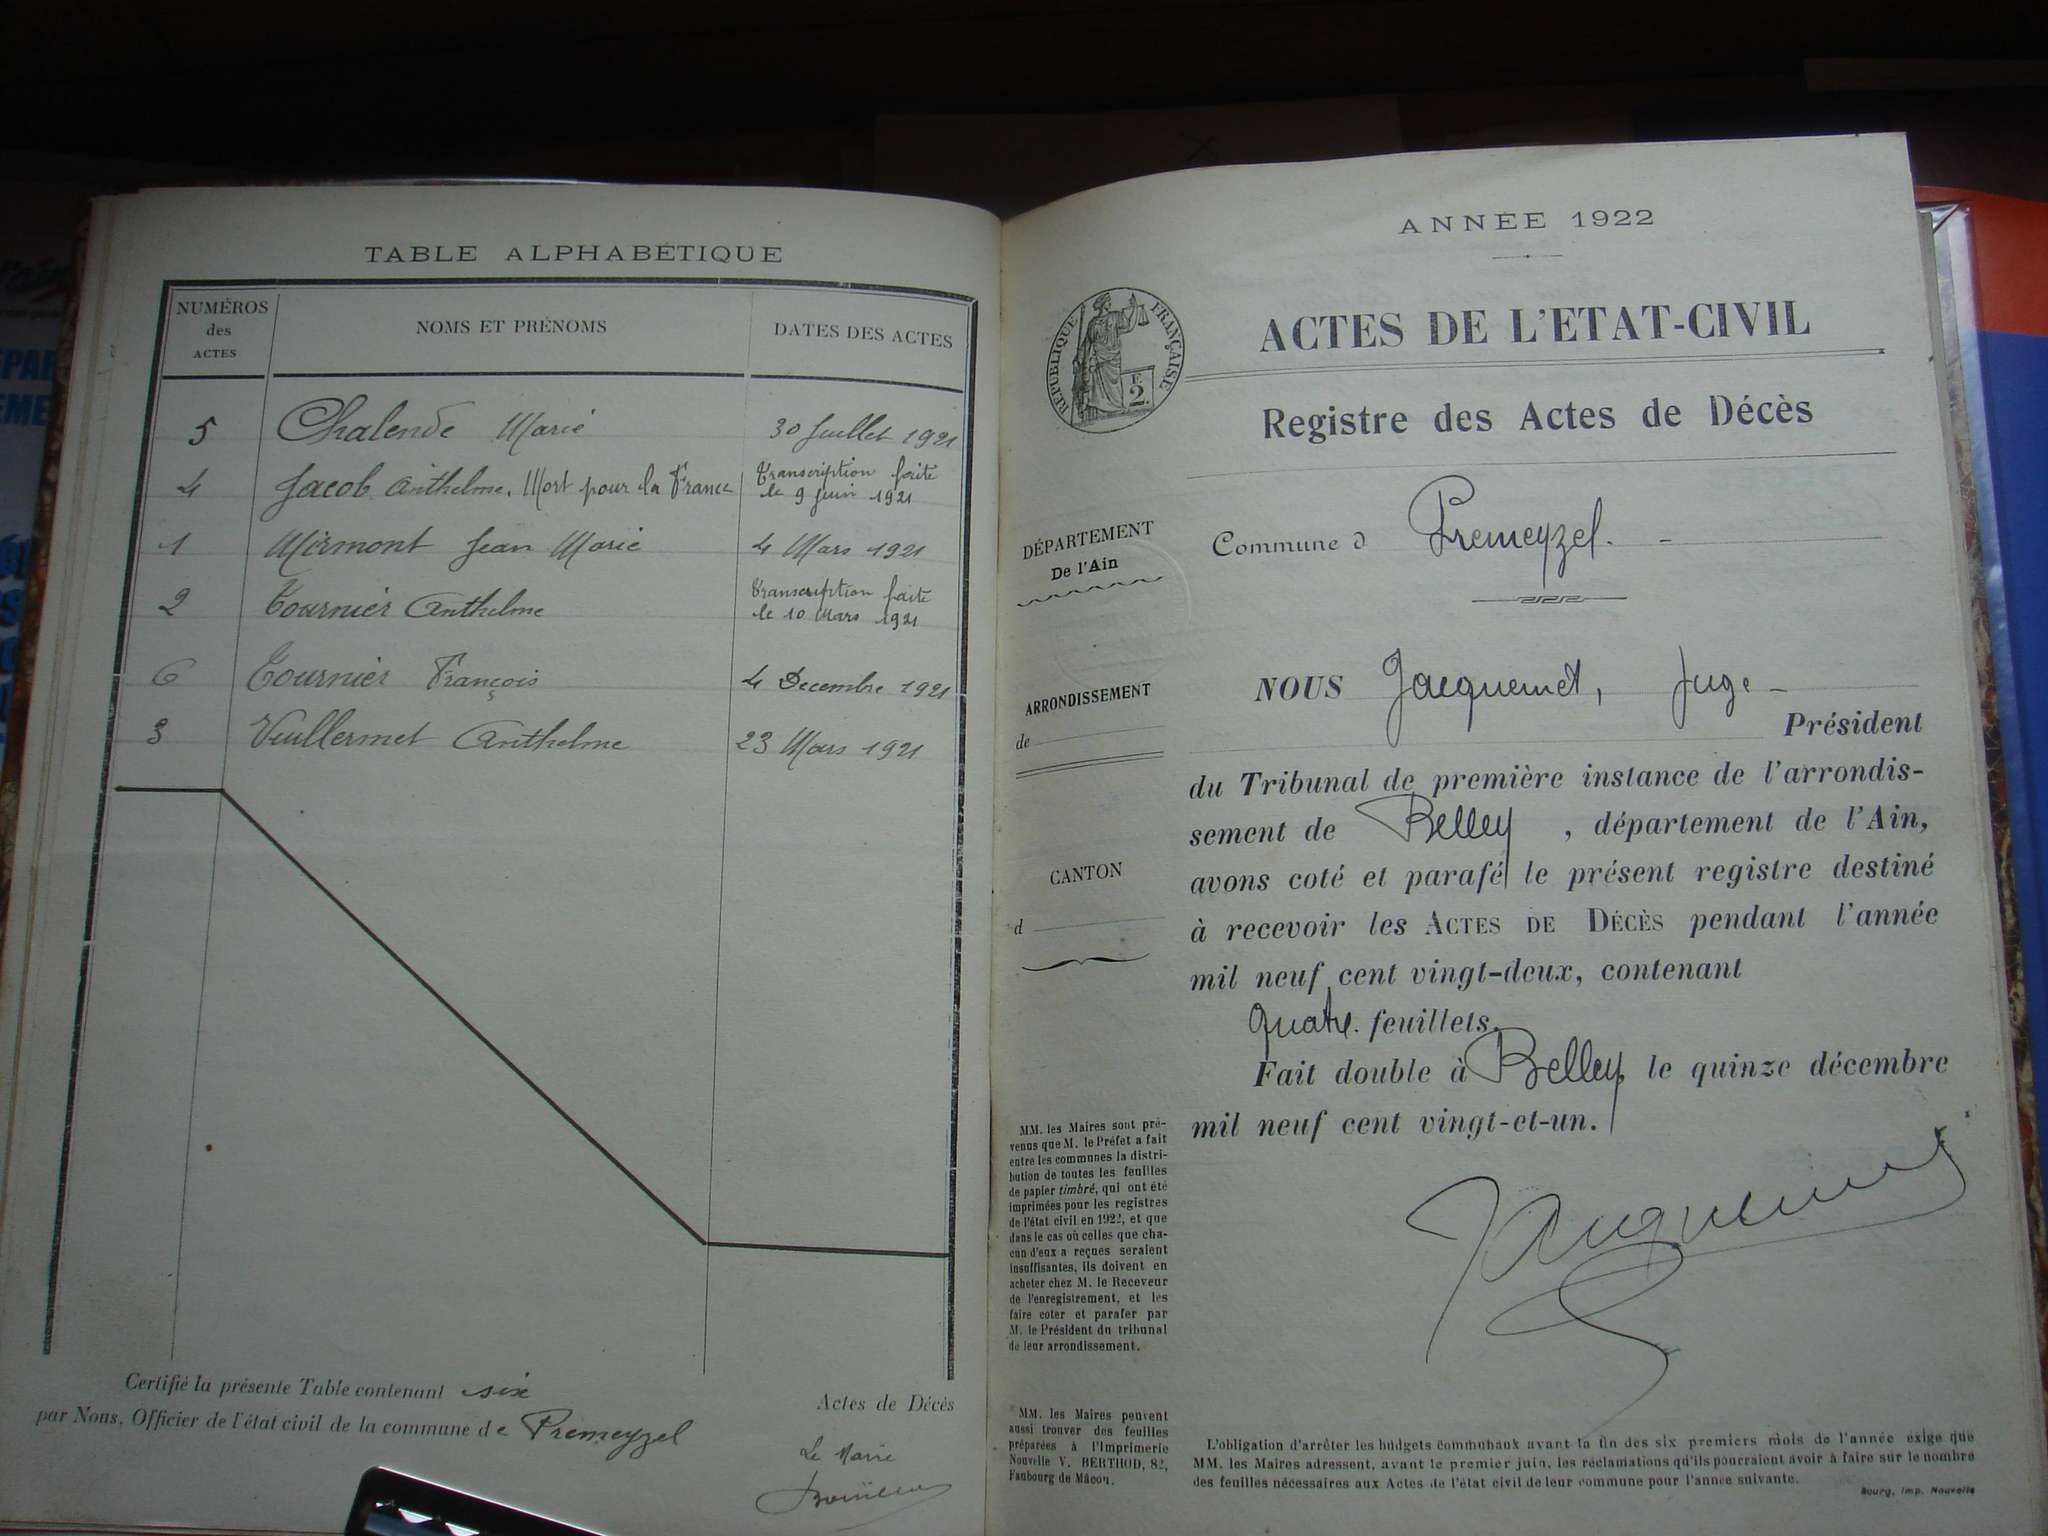 TABLE ALPHABÉTIQUE
NUMÉROS des ACTES
NOMS ET PRÉNOMS
DATES DES ACTES
5 Chalende Marie 30 Juillet 1921
4 Jacob Anthelme. Mort pour la France Transcription faite
le 9 Juin 1921
1 Mirmont Jean Marie 4 Mars 1921
2 Tournier Anthelme Transcription faite
le 10 Mars 1921
6 Tournier François 4 Decembre 1921
3 Vuillermet Anthelme 23 Mars 1921
Certifié la présente Table contenant six Actes de Décès
par Nous, Officier de l'état civil de la commune de Premeyzel
Le Maire
ANNÉE 1922
RÉPUBLIQUE FRANÇAISE
2
ACTES DE L'ETAT-CIVIL
Registre des Actes de Décès
DÉPARTEMENT
De l'Ain
Commune d Premeyzel.
ARRONDISSEMENT
de
CANTON
d
NOUS Jacquemet, Juge
Président
du Tribunal de première instance de l'arrondis-
sement de Belley, département de l'Ain,
avons coté et parafé le présent registre destiné
à recevoir les ACTES DE DÉCÈS pendant l'année
mil neuf cent vingt-deux, contenant
quatre feuillets.
Fait double à Belley, le quinze décembre
mil neuf cent vingt-et-un.
Jacquemet
MM. les Maires sont pré-
venus que M. le Préfet a fait
entre les communes la distri-
bution de toutes les feuilles
de papier timbré, qui ont été
imprimées pour les registres
de l'état civil en 1922, et que
dans le cas où celles que cha-
cun d'eux a reçues seraient
insuffisantes, ils doivent en
acheter chez M. le Receveur
de l'enregistrement, et les
faire coter et parafer par
M. le Président du tribunal
de leur arrondissement.
MM. les Maires peuvent
aussi trouver des feuilles
préparées à l'Imprimerie
Nouvelle V. BERTHOD, 82,
Faubourg de Mâcon.
L'obligation d'arrêter les budgets communaux avant la fin des six premiers mois de l'année exige que
MM. les Maires adressent, avant le premier juin, les réclamations qu'ils pourraient avoir à faire sur le nombre
des feuilles nécessaires aux Actes de l'état civil de leur commune pour l'année suivante.
Bourg, Imp. Nouvelle